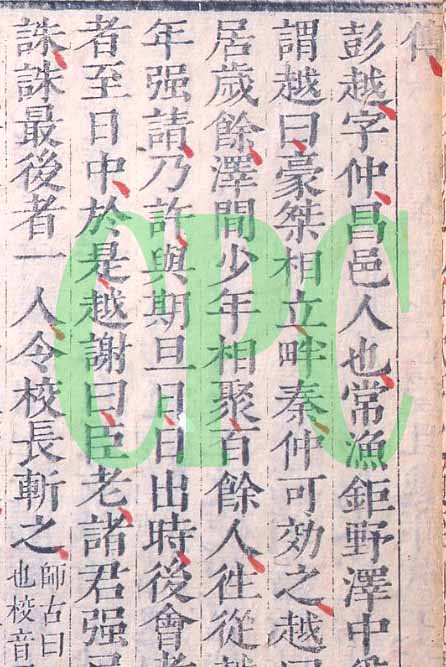 彭越字仲昌邑人也常漁鉅野澤中
謂越曰豪桀相立畔秦仲可効之越
居歲餘澤間少年相聚百餘人徃從
年强請乃許與期旦日日出時後會
者至日中於是越謝曰臣老諸君强
誅誅最後者一人令校長斬之
師古曰
也校音
CPC